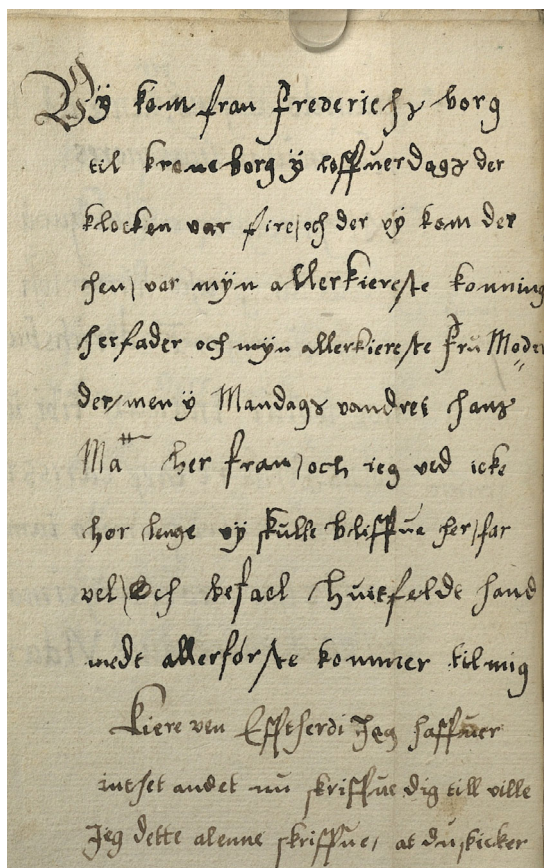 Vÿ kom fran Frederichs borg
til kroneborg ÿ loffuerdags der
klocken var fire/och der vÿ kom der
hen/ var mÿn allerkiereste konning
herfader och mÿn allerkiereste Frü Moder
der/men ÿ Mandags vandret hans
Matt her fran/och ieg ved icke
hor lenge vÿ skulle bliffue her/far
vel/Och befael Huitfelde hand
medt allerførste kommer til mig
Kiere ven Efftherdi Jeg haffuer
inthet andet nu skriffue dig till ville
Jeg dette alenne skriffue, at du skicker